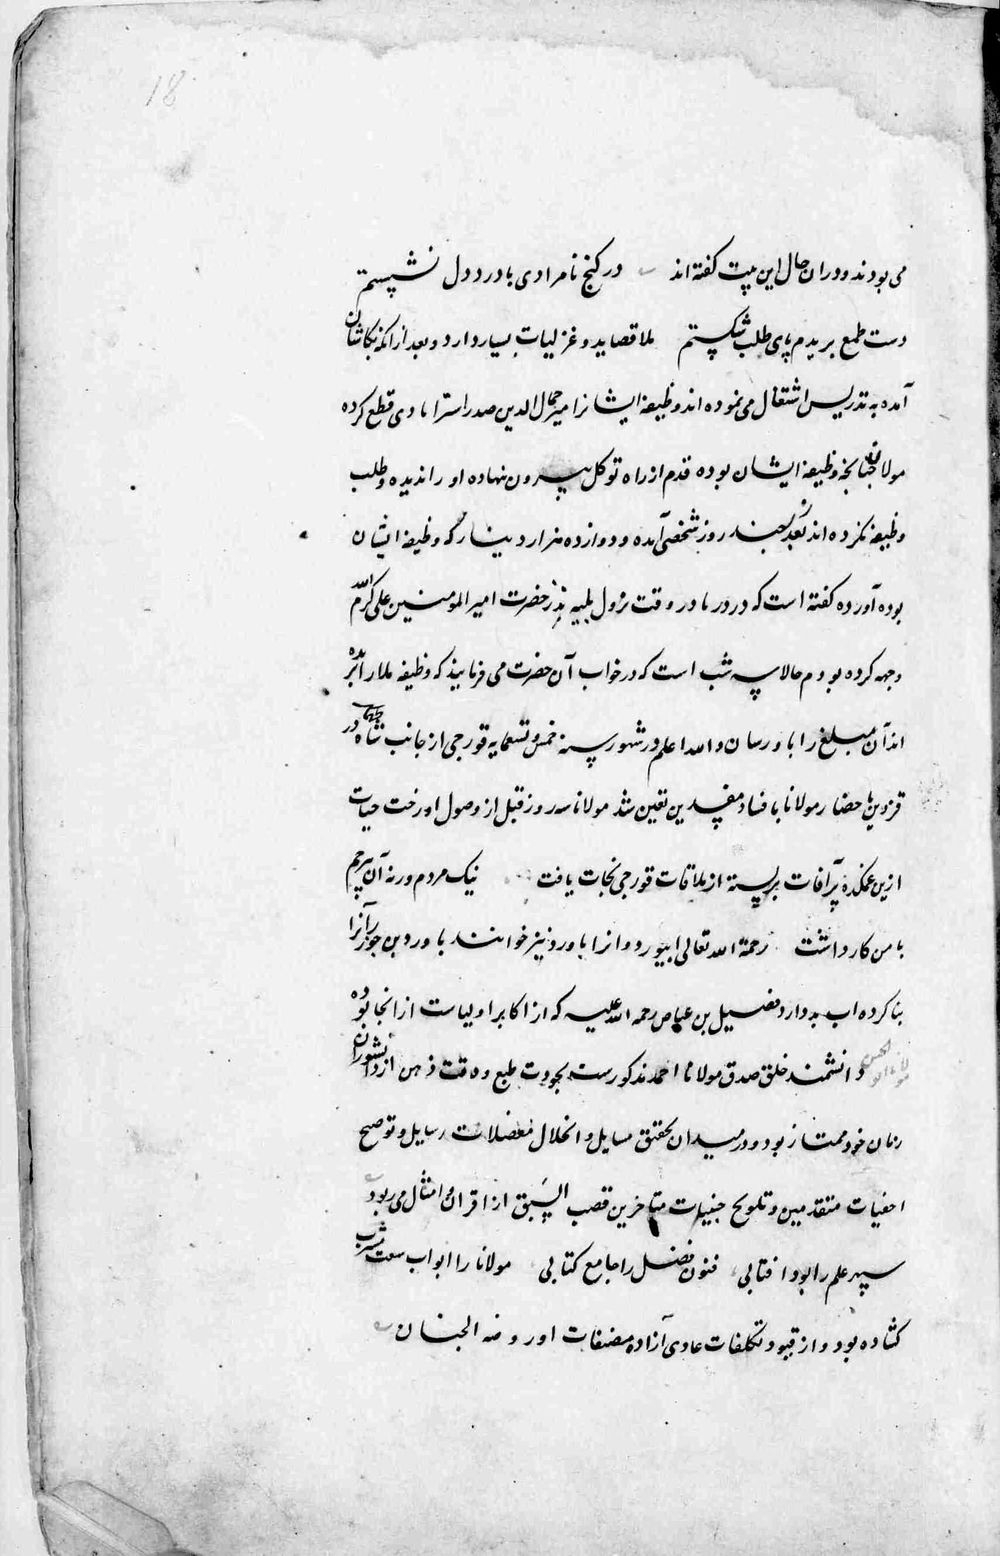 18
می بودند و در ان حال این بیت کفته اند در کنج نامرادی با درد دل نشستیم
دست طمع بریدم پای طلب شکستم ملا قصاید و غزلیات بسیار دارد و بعد از انکه بکاشان
آمده به تدریس اشتغال می نموده اند وظیفه ایشانرا میر جمال الدین صدر استرابادی قطع کرده
مولانا وظیفه ایشان بوده قدم از راه توکل بیرون نهاده او را ندیده و طلب
وظیفه نکرده اند بعد از چند روز شخصی آمده و دوازده هزار دینار که وظیفه ایشان
بوده آورده کفته است که در دریا در وقت نزول بلیه نذر حضرت امیر المومنین علی کرم الله
وجهه کرده بودم حالا سه شب است که در خواب آن حضرت می فرمایند که وظیفه ملا را نبرده
اند آن مبلغ را باو رسان و الله اعلم در شهور سنه خمس و تسعمایه قورجی از جانب شاه در
قزوین باحضار مولانا بافساد مفسدین تعین شد مولانا سه روز قبل از وصول او رخت حیات
ازین غمکده پر آفات بربسته از ملاقات قورجی نجات یافت نیک مردم ورنه آن بیرحم
با من کار داشت رحمة الله تعالی ابیورد و انرا باورد نیز خوانند باورد بن جودرز آنرا
بنا کرده اب بد دارد فضیل بن عیاض رحمه الله علیه که از اکابر اولیاست از انجا بوده
مولانا ابو الحسن دانشمند خلق صدق مولانا احمد مذکورست بجودت طبع و دقت ذهن از دانشوران
زمان خود ممتاز بود و در میدان تحقیق مسایل و انحلال معضلات رسایل و توضیح
اخفیات متقدمین و تلویح متاخرین قصب السبق از اقران و امثال می ربود
سپهر علم را بود افتابی فنون فضل را جامع کتابی مولانا را ابواب سعت مشرب
کشاده بود و از قیود تکلفات عادی آزاده مصنفات او روضه الجنان